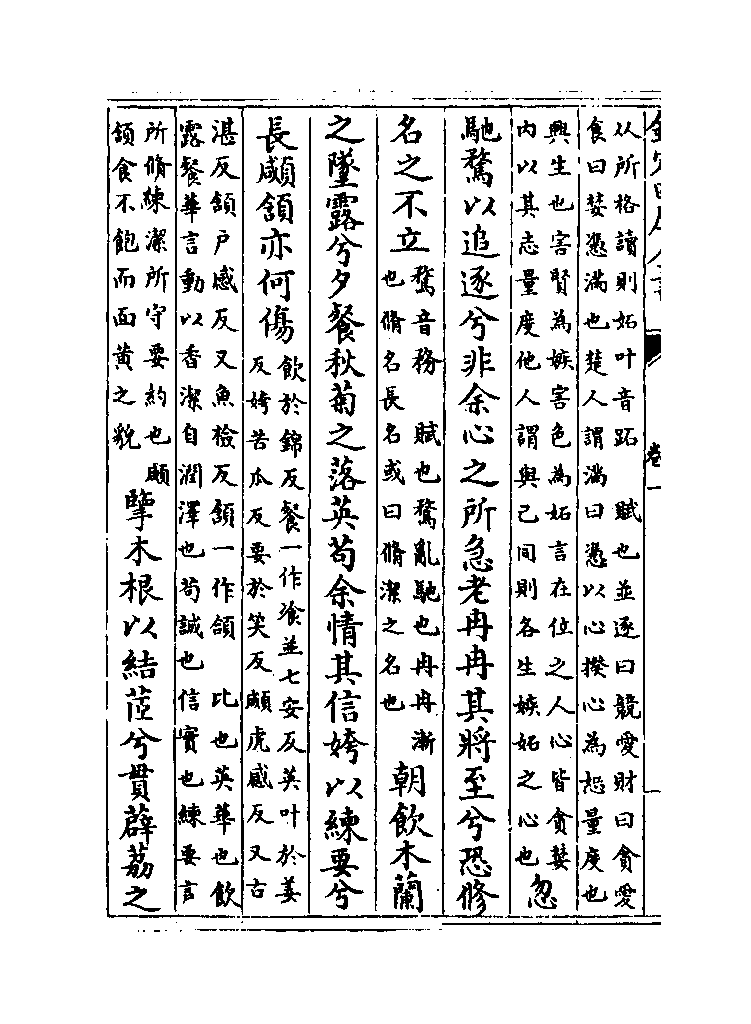 从所格讀則妬叶音跖　賦也並逐曰競愛財曰貪愛
食曰婪憑滿也楚人謂滿曰憑以心揆心為恕量度也
興生也害賢為嫉害色為妬言在位之人心皆貪婪
内以其志量度他人謂與己同則各生嫉妬之心也
忽
馳騖以追逐兮非余心之所急老冉冉其將至兮恐脩
名之不立
騖音務　賦也騖亂馳也冉冉漸
也脩名長名或曰脩潔之名也
朝飲木蘭
之墜露兮夕餐秋菊之落英苟余情其信姱以練要兮
長顑頷亦何傷
飲於錦反餐一作飡並七安反英叶於姜
反姱苦瓜反要於笑反顑虎感反又古
湛反頷户感反又魚檢反頷一作頜　比也英華也飲
露餐華言動以香潔自潤澤也苟誠也信實也練要言
所脩練潔所守要約也顑
頷食不飽而面黄之貌
擥木根以結茝兮貫薜荔之